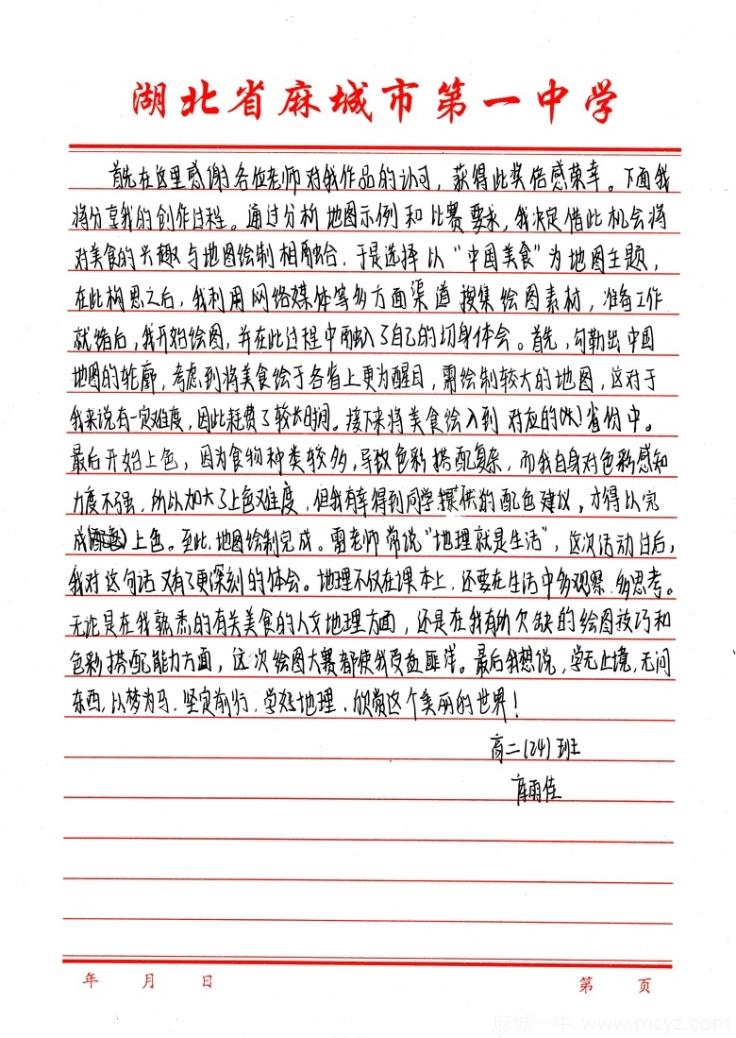 湖北省麻城市第一中学
首先在这里感谢各位老师对我作品的认可，获得此奖倍感荣幸。下面我
将分享我的创作过程。通过分析地图示例和比赛要求，我决定借此机会将
对美食的兴趣与地图绘制相融合，于是选择以“中国美食”为地图主题，
在此构思之后，我利用网络媒体等多方面渠道搜集绘图素材，准备工作
就绪后，我开始绘图，并在此过程中融入了自己的切身体会。首先，勾勒出中国
地图的轮廓，考虑到将美食绘于各省上更为醒目，需绘制较大的地图，这对于
我来说有一定难度，因此耗费了较长时间。接下来将美食绘入到对应的省份中。
最后开始上色，因为食物种类较多，导致色彩搭配复杂，而我自身对色彩感知
力度不强，所以加大了上色难度，但我有幸得到同学提供的配色建议，才得以完
成上色。至此，地图绘制完成。雷老师常说“地理就是生活”，这次活动过后，
我对这句话又有了更深刻的体会。地理不仅在课本上，还要在生活中多观察，多思考。
无论是在我熟悉的有关美食的人文地理方面，还是在我有所欠缺的绘图技巧和
色彩搭配能力方面，这次绘图大赛都使我受益匪浅。最后我想说，学无止境，无问
东西，以梦为马，坚定前行，学好地理，欣赏这个美丽的世界！
高二（24）班
雨佳
年 月 日 第 页
麻城一中 www.mcyz.com